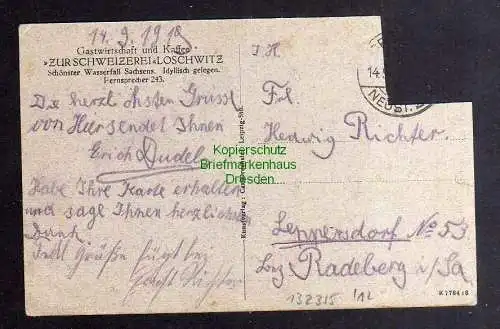 14.9.1918
Gastwirtschaft und Kaffee
»ZUR SCHWEIZEREI« LOSCHWITZ
Schönster Wasserfall Sachsens. Idyllisch gelegen.
Fernsprecher 243.
Die herzlichsten Grüsse
von Hier sendet Ihnen
Erich Dudel
Habe Ihre Karte erhalten
und sage Ihnen herzlichen
Dank.
Grüße fügt bei
Richter
Kunstverlag
Leipzig-Stö.
14.9
NEUST.
Frl.
Hedwig Richter
Leppersdorf No 53
Bez Radeberg i/Sa
K 7764 18
132315 /12
Kopierschutz
Briefmarkenhaus
Dresden